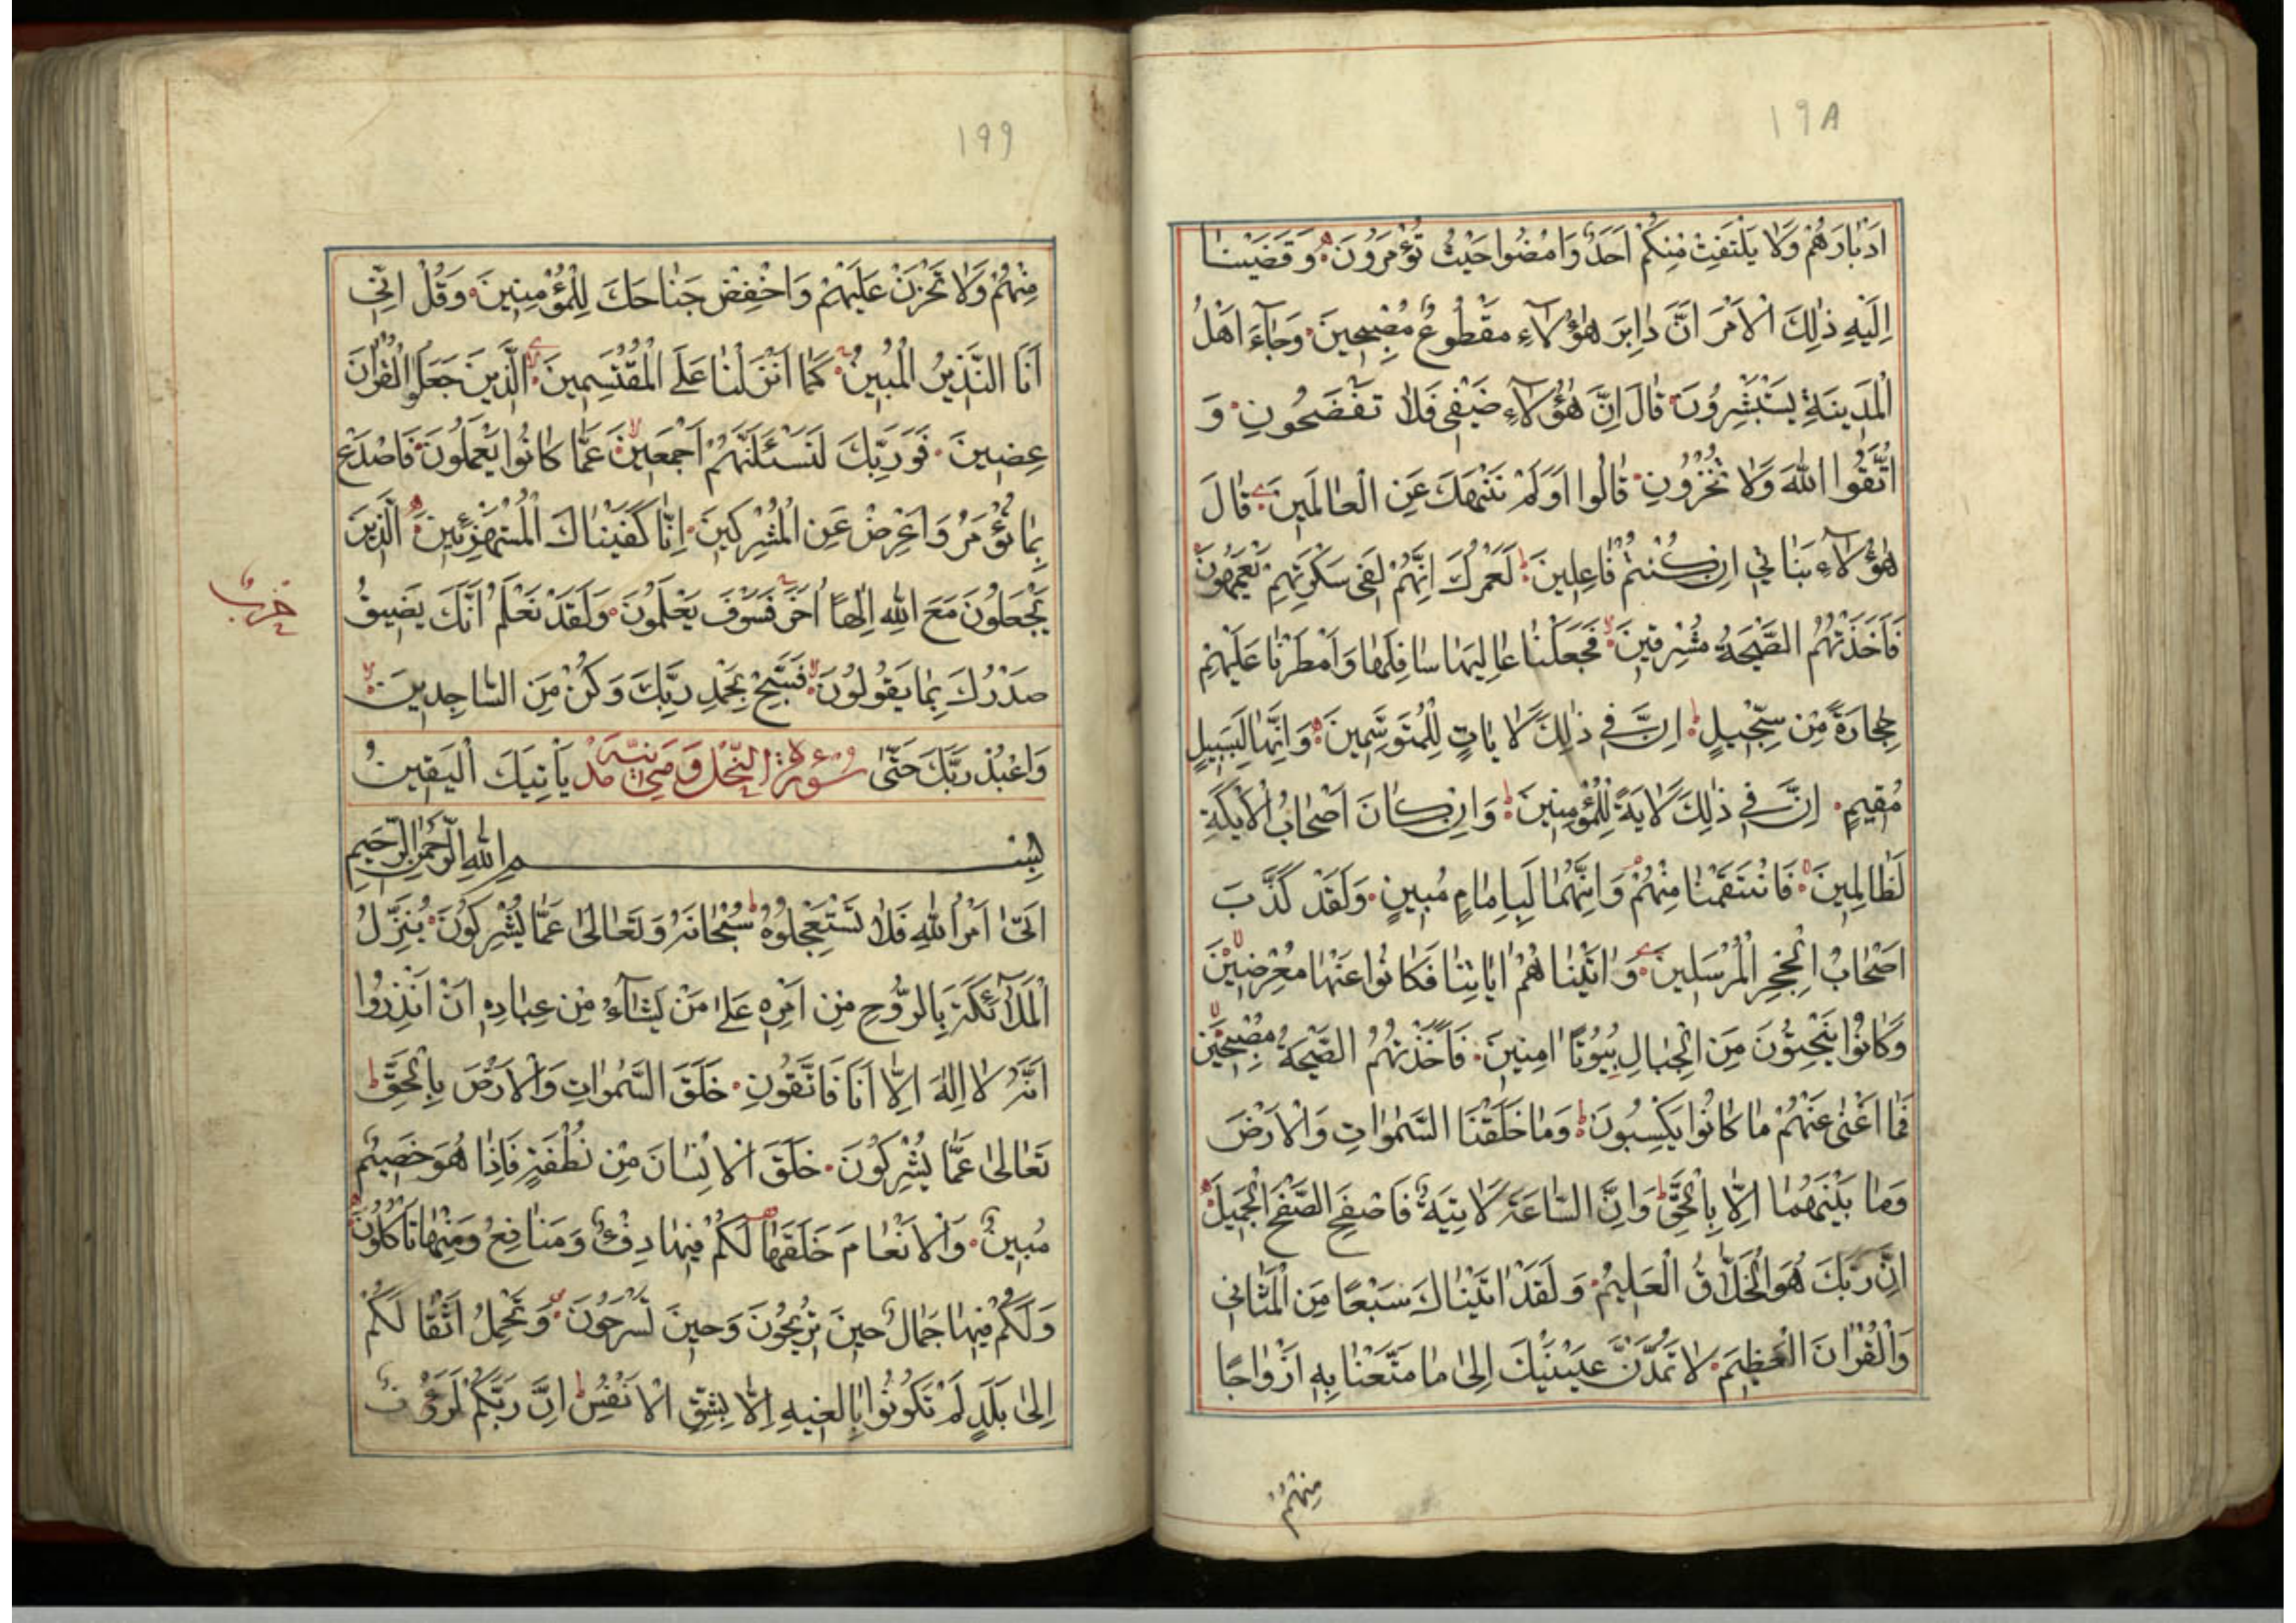 ١٩٨
اَدْبَارَهُمْ وَلَا يَلْتَفِتْ مِنْكُمْ اَحَدٌ وَامْضُوا حَيْثُ تُؤْمَرُونَ وَقَضَيْنَا
اِلَيْهِ ذٰلِكَ الْاَمْرَ اَنَّ دَابِرَ هٰؤُلَآءِ مَقْطُوعٌ مُصْبِحِينَ وَجَآءَ اَهْلُ
الْمَدِينَةِ يَسْتَبْشِرُونَ قَالَ اِنَّ هٰؤُلَآءِ ضَيْفِى فَلَا تَفْضَحُونِ وَ
اتَّقُوا اللّٰهَ وَلَا تُخْزُونِ قَالُوا اَوَلَمْ نَنْهَكَ عَنِ الْعَالَمِينَ قَالَ
هٰؤُلَآءِ بَنَاتِي اِنْ كُنْتُمْ فَاعِلِينَ لَعَمْرُكَ اِنَّهُمْ لَفِى سَكْرَتِهِمْ يَعْمَهُونَ
فَاَخَذَتْهُمُ الصَّيْحَةُ مُشْرِقِينَ فَجَعَلْنَا عَالِيَهَا سَافِلَهَا وَاَمْطَرْنَا عَلَيْهِمْ
حِجَارَةً مِنْ سِجِّيلٍ اِنَّ فِي ذٰلِكَ لَاٰيَاتٍ لِلْمُتَوَسِّمِينَ وَاِنَّهَا لَبِسَبِيلٍ
مُقِيمٍ اِنَّ فِي ذٰلِكَ لَاٰيَةً لِلْمُؤْمِنِينَ وَاِنْ كَانَ اَصْحَابُ الْاَيْكَةِ
لَظَالِمِينَ فَانْتَقَمْنَا مِنْهُمْ وَاِنَّهُمَا لَبِاِمَامٍ مُبِينٍ وَلَقَدْ كَذَّبَ
اَصْحَابُ الْحِجْرِ الْمُرْسَلِينَ وَاٰتَيْنَاهُمْ اٰيَاتِنَا فَكَانُوا عَنْهَا مُعْرِضِينَ
وَكَانُوا يَنْحِتُونَ مِنَ الْجِبَالِ بُيُوتًا اٰمِنِينَ فَاَخَذَتْهُمُ الصَّيْحَةُ مُصْبِحِينَ
فَمَا اَغْنٰى عَنْهُمْ مَا كَانُوا يَكْسِبُونَ وَمَا خَلَقْنَا السَّمٰوَاتِ وَالْاَرْضَ
وَمَا بَيْنَهُمَا اِلَّا بِالْحَقِّ وَاِنَّ السَّاعَةَ لَاٰتِيَةٌ فَاصْفَحِ الصَّفْحَ الْجَمِيلَ
اِنَّ رَبَّكَ هُوَ الْخَلَّاقُ الْعَلِيمُ وَلَقَدْ اٰتَيْنَاكَ سَبْعًا مِنَ الْمَثَانِي
وَالْقُرْاٰنَ الْعَظِيمَ لَا تَمُدَّنَّ عَيْنَيْكَ اِلٰى مَا مَتَّعْنَا بِهِ اَزْوَاجًا
مِنْهُمْ
١٩٩
مِنْهُمْ وَلَا تَحْزَنْ عَلَيْهِمْ وَاخْفِضْ جَنَاحَكَ لِلْمُؤْمِنِينَ وَقُلْ اِنِّي
اَنَا النَّذِيرُ الْمُبِينُ كَمَا اَنْزَلْنَا عَلَى الْمُقْتَسِمِينَ الَّذِينَ جَعَلُوا الْقُرْاٰنَ
عِضِينَ فَوَرَبِّكَ لَنَسْئَلَنَّهُمْ اَجْمَعِينَ عَمَّا كَانُوا يَعْمَلُونَ فَاصْدَعْ
بِمَا تُؤْمَرُ وَاَعْرِضْ عَنِ الْمُشْرِكِينَ اِنَّا كَفَيْنَاكَ الْمُسْتَهْزِئِينَ الَّذِينَ
يَجْعَلُونَ مَعَ اللّٰهِ اِلٰهًا اٰخَرَ فَسَوْفَ يَعْلَمُونَ وَلَقَدْ نَعْلَمُ اَنَّكَ يَضِيقُ
حزب
صَدْرُكَ بِمَا يَقُولُونَ فَسَبِّحْ بِحَمْدِ رَبِّكَ وَكُنْ مِنَ السَّاجِدِينَ
وَاعْبُدْ رَبَّكَ حَتّٰى سُورَةُ النَّحْلِ يَأْتِيَكَ الْيَقِينُ
بِسْمِ اللّٰهِ الرَّحْمٰنِ الرَّحِيمِ
اَتٰى اَمْرُ اللّٰهِ فَلَا تَسْتَعْجِلُوهُ سُبْحَانَهُ وَتَعَالٰى عَمَّا يُشْرِكُونَ يُنَزِّلُ
الْمَلَآئِكَةَ بِالرُّوحِ مِنْ اَمْرِهِ عَلٰى مَنْ يَشَآءُ مِنْ عِبَادِهِ اَنْ اَنْذِرُوا
اَنَّهُ لَا اِلٰهَ اِلَّا اَنَا فَاتَّقُونِ خَلَقَ السَّمٰوَاتِ وَالْاَرْضَ بِالْحَقِّ
تَعَالٰى عَمَّا يُشْرِكُونَ خَلَقَ الْاِنْسَانَ مِنْ نُطْفَةٍ فَاِذَا هُوَ خَصِيمٌ
مُبِينٌ وَالْاَنْعَامَ خَلَقَهَا لَكُمْ فِيهَا دِفْءٌ وَمَنَافِعُ وَمِنْهَا تَأْكُلُونَ
وَلَكُمْ فِيهَا جَمَالٌ حِينَ تُرِيحُونَ وَحِينَ تَسْرَحُونَ وَتَحْمِلُ اَثْقَالَكُمْ
اِلٰى بَلَدٍ لَمْ تَكُونُوا بَالِغِيهِ اِلَّا بِشِقِّ الْاَنْفُسِ اِنَّ رَبَّكُمْ لَرَؤُفٌ